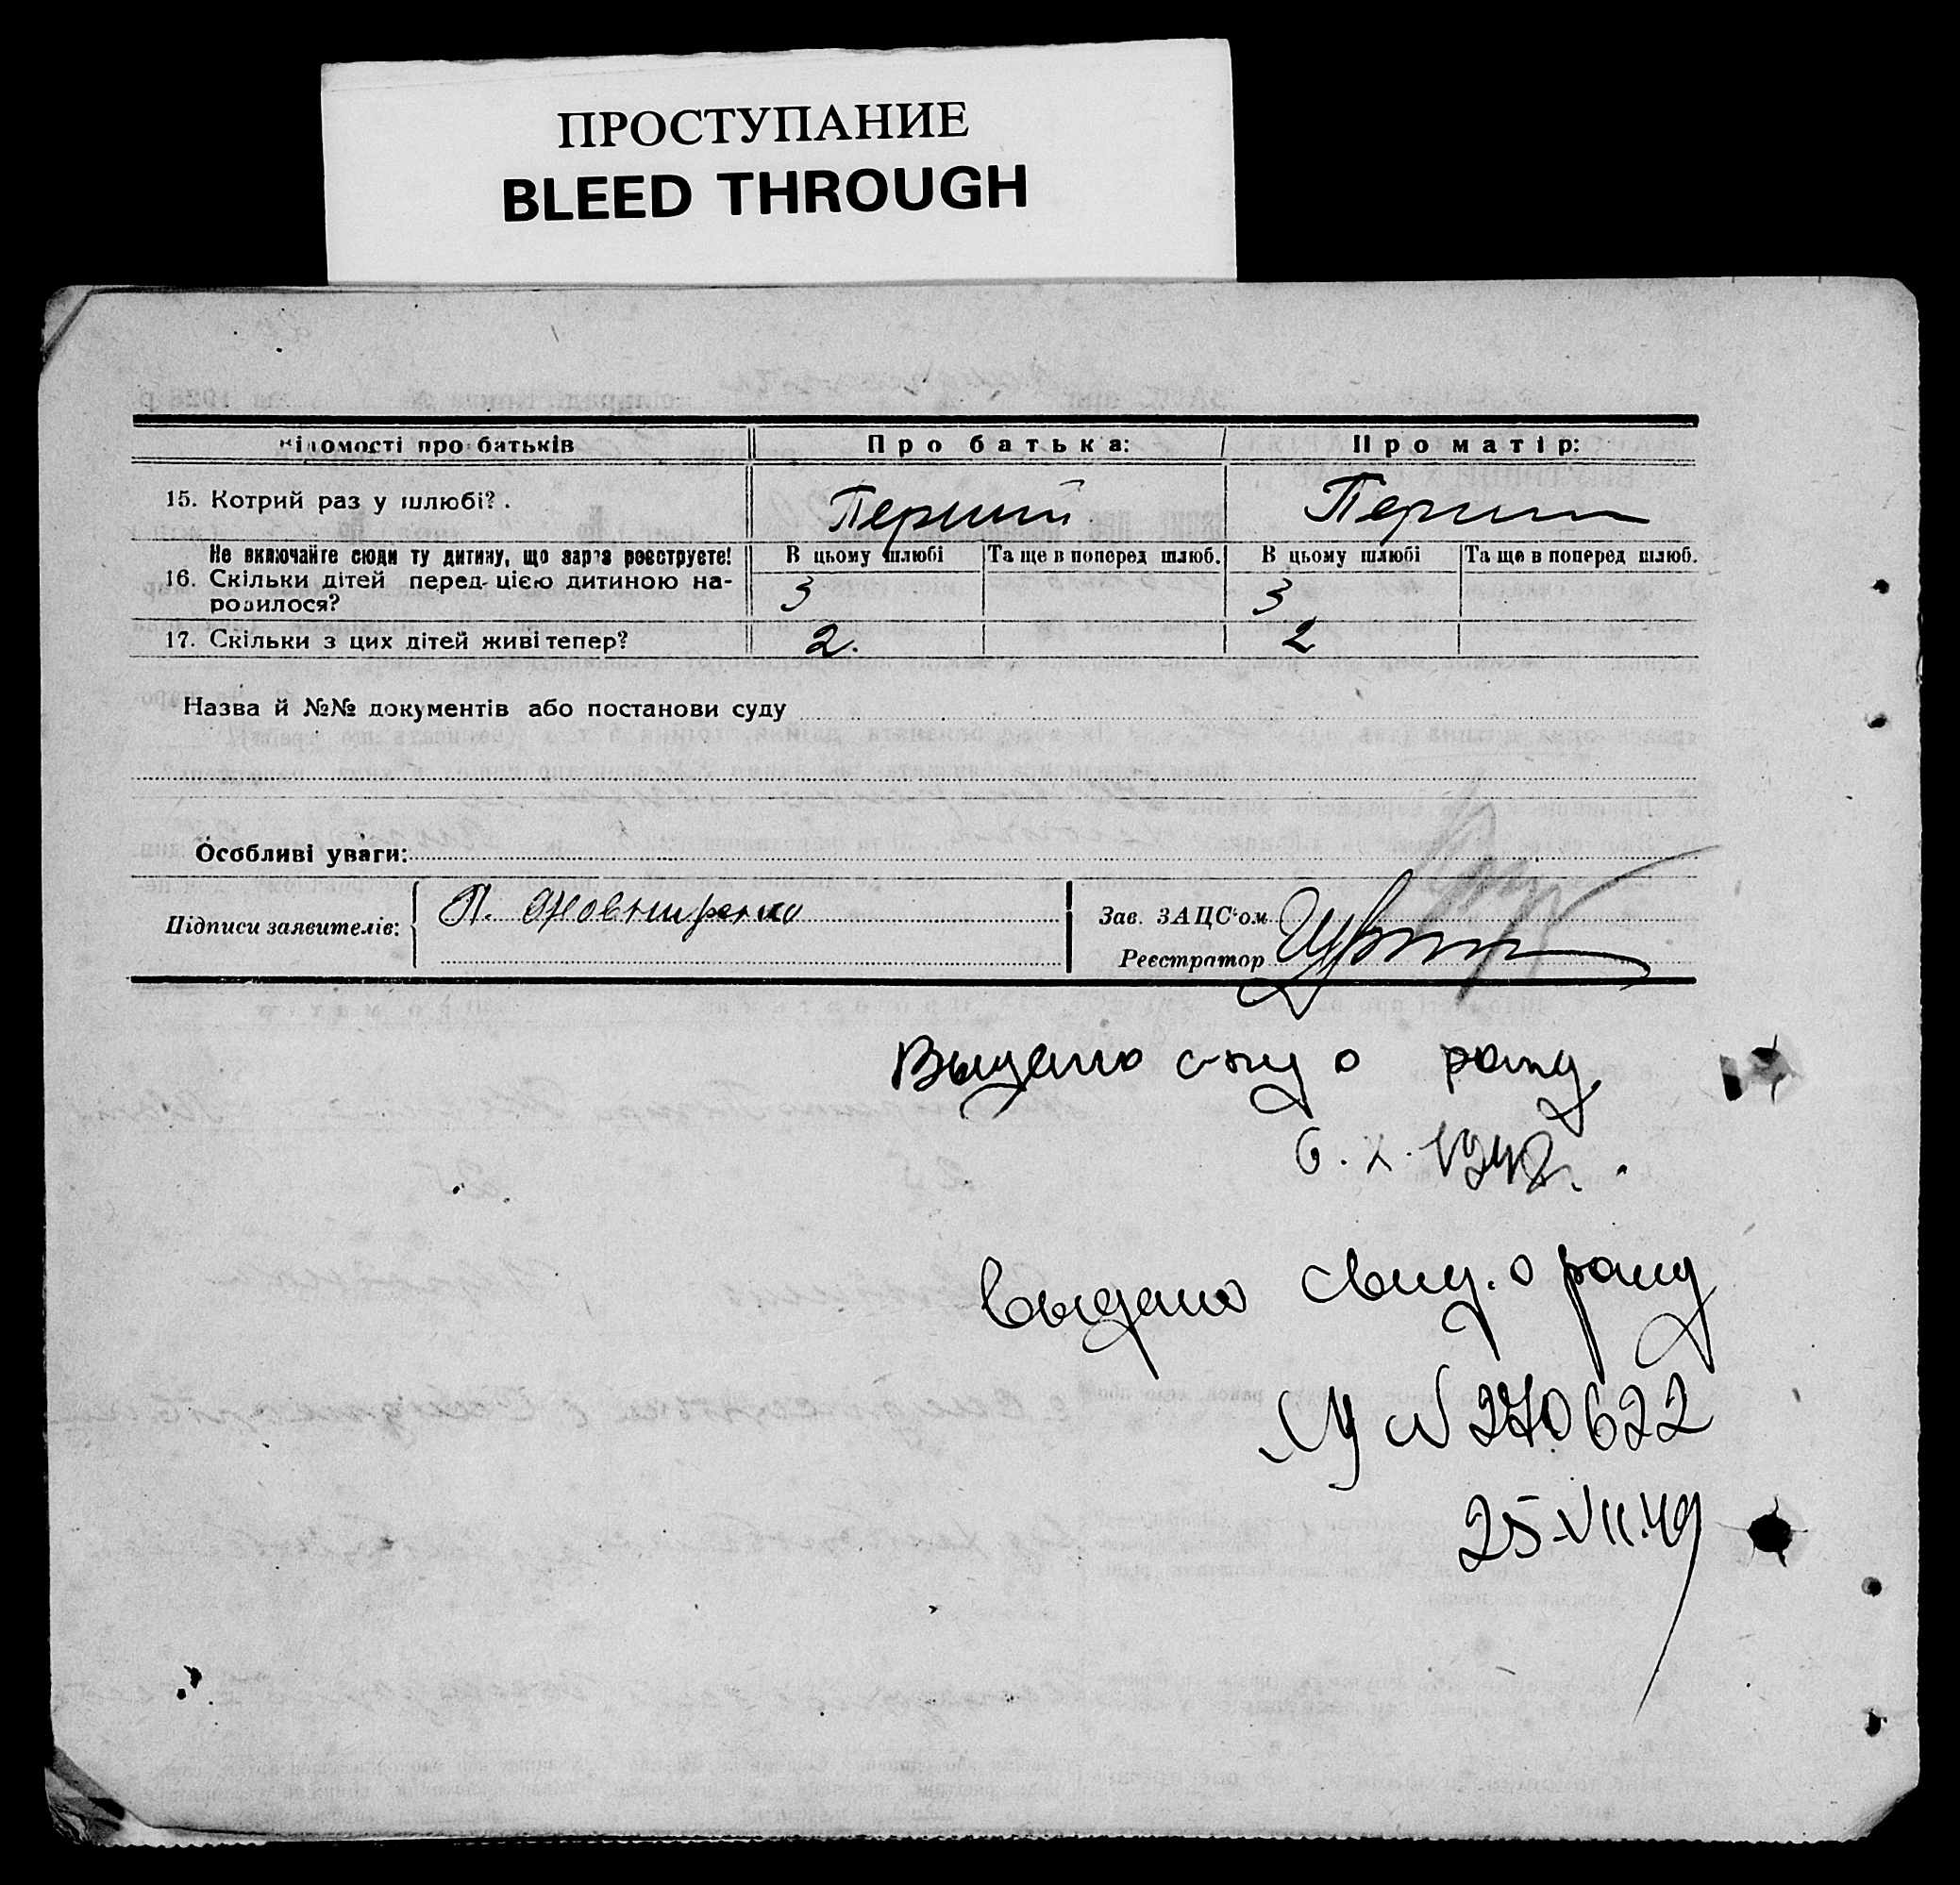 ПРОСТУПАНИЕ
BLEED THROUGH
Відомості про батьків Про батька: Про матір:
15. Котрий раз у шлюбі? Перший Перший
Не включайте сюди ту дитину, що зараз реєструєте! В цьому шлюбі Та ще в поперед. шлюб. В цьому шлюбі Та ще в поперед. шлюб.
16. Скільки дітей перед цією дитиною на- 3 3
родилося?
17. Скільки з цих дітей живі тепер? 2. 2
Назва й №№ документів або постанови суду
Особливі уваги:
Підписи заявителів: П. Зав. ЗАЦС'ом
Реєстратор
Выдано о рожд
6. X. 194
Выдано свид. о рожд
N 270622
25-VII.49